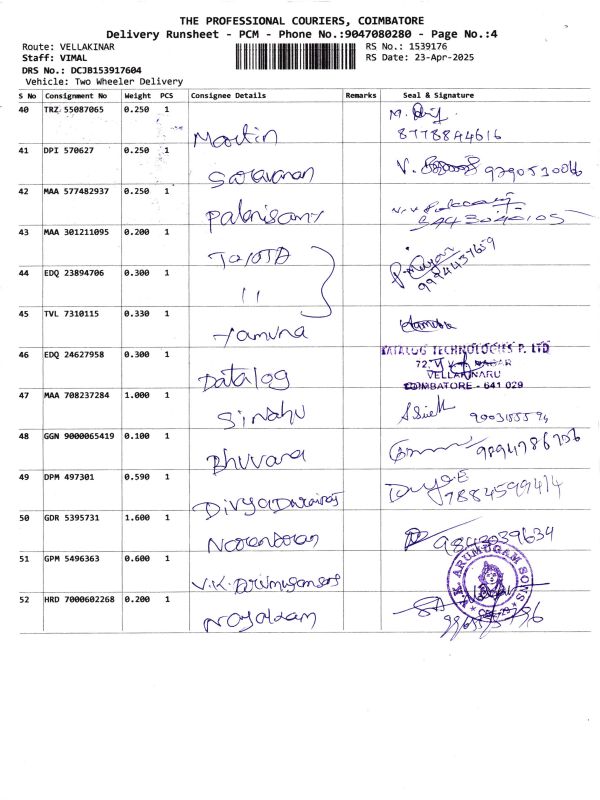 THE PROFESSIONAL COURIERS, COIMBATORE
Delivery Runsheet - PCM - Phone No.:9047080280 - Page No.:4
Route: VELLAKINAR
RS No.: 1539176
Staff: VIMAL
RS Date: 23-Apr-2025
DRS No.: DCJB153917604
Vehicle: Two Wheeler Delivery
S No Consignment No Weight PCS Consignee Details Remarks Seal & Signature
40 TRZ 55087065 0.250 1 Martin
8778894616
41 DPI 570627 0.250 1 Saravanan 9790510066
42 MAA 577482937 0.250 1 Palanisamy
43 MAA 301211095 0.200 1
9994437659
44 EDQ 23894706 0.300 1 11
45 TVL 7310115 0.330 1 Yamuna
46 EDQ 24627958 0.300 1 Datalog
DATALOG TECHNOLOGIES P. LTD
72, NAGAR
VELLAKINARU
COIMBATORE - 641 029
47 MAA 708237284 1.000 1
48 GGN 9000065419 0.100 1 Bhuvana 9894786706
49 DPM 497301 0.590 1
7884599414
50 GDR 5395731 1.600 1
9843039634
51 GPM 5496363 0.600 1 V.K. Arumugam sons
V.K. ARUMUGAM SONS
CBE-29
52 HRD 7000602268 0.200 1